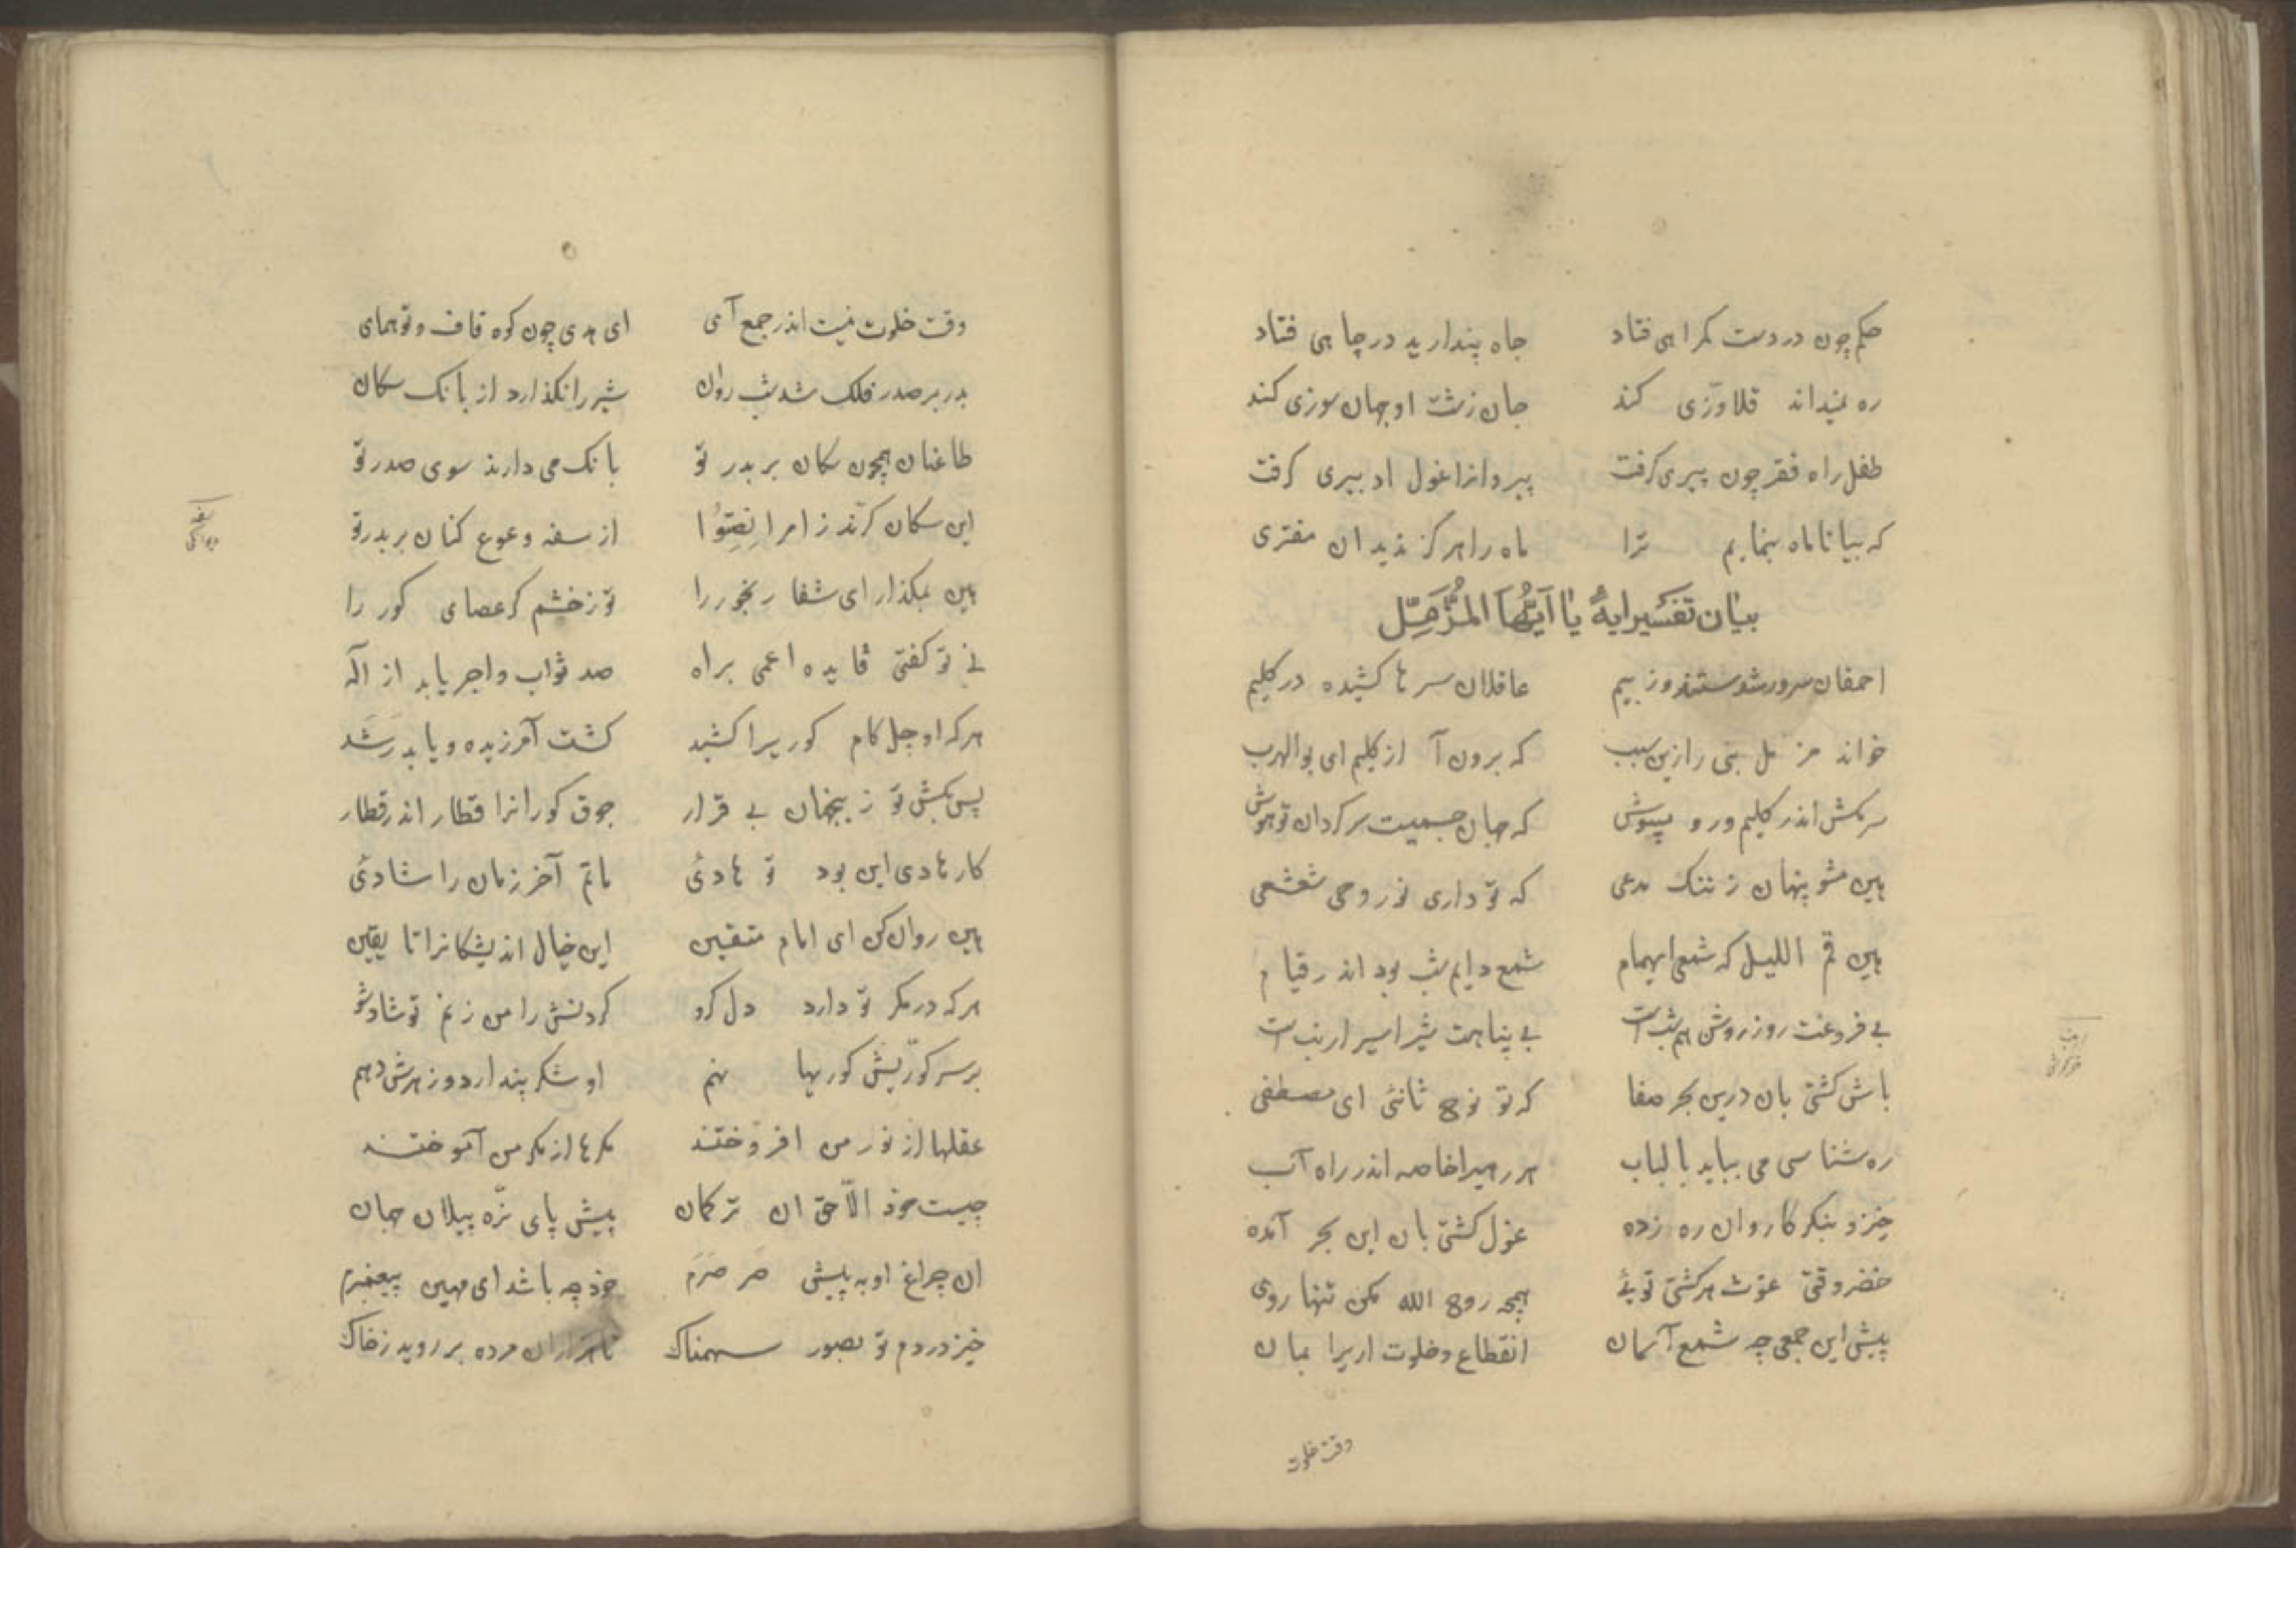 حکم چون در دست گمراهی فتاد جاه پندارید در چاهی فتاد
ره نمیداند قلاوزی کند جان زشت او جهان سوزی کند
طفل راه فقر چون پیری گرفت پیروانرا غول ادبیری گرفت
که بیا تا ماه بنمایم ترا ماه را هرگز ندید ان مفتری
بیان تفسیر ایهٔ یا ایّها المُزَّمِّل
احمقان سرور شدستند و ز بیم عاقلان سرها کشیده در گلیم
خواند مزمل نبی را زین سبب که برون آ از گلیم ای بوالهرب
سر مکش اندر گلیم و رو مپوش که جهان جسمیست سرگردان تو هوش
هین مشو پنهان ز ننگ مدعی که تو داری نور وحی شعشعی
هین قم اللیل که شمعی ایهمام شمع دایم شب بود اندر قیام
بی فروغت روز روشن هم شب است بی پناهت شیر اسیر ارنب است
باش کشتی بان درین بحر صفا که تو نوح ثانئی ای مصطفی
ره شناسی می بباید با لباب هر رهیرا خاصه اندر راه آب
خیز و بنگر کاروان ره زده غول کشتی بان این بحر آمده
خضر وقتی غوث هر کشتی توئی همچو روح الله مکن تنها روی
پیش این جمعی چو شمع آسمان انقطاع و خلوت اریرا بمان
وقت خلوت
وقت خلوت نیست اندر جمع آی ای هدی چون کوه قاف و تو همای
بدر بر صدر فلک شد شب روان شیر را نگذارد از بانگ سگان
طاعنان همچون سگان بر بدر تو بانگ می دارند سوی صدر تو
این سگان کرّند ز امر انصِتُوا از سفه وعوع کنان بر بدر تو
هین بمگذار ای شفا رنجور را تو ز خشم کر عصای کور را
نی تو گفتی قاید اعمی براه صد ثواب و اجر یابد از اله
هر که او چل گام کوریرا کشید گشت آمرزیده و یابد رَشَد
پس بکش تو زینجهان بی قرار جوق کورانرا قطار اندر قطار
کار هادی این بود تو هادئی ماتم آخر زمان را شادئی
هین روان کن ای امام متقین این خیال اندیشگانرا تا یقین
هر که در مکر تو دارد دل گرو گردنش را من زنم تو شاد شو
بر سر کوریش کوریها نهم او شکر پندارد و زهرش دهم
عقلها از نور من افروختند مکرها از مکر من آموختند
چیست خود الاّجق ان ترکمان پیش پای نرّه پیلان جهان
ان چراغ او به پیش صرصرم خود چه باشد ای مهین پیغمبرم
خیز در دم تو بصور سهمناک تا هزاران مرده بر روید ز خاک
سفه